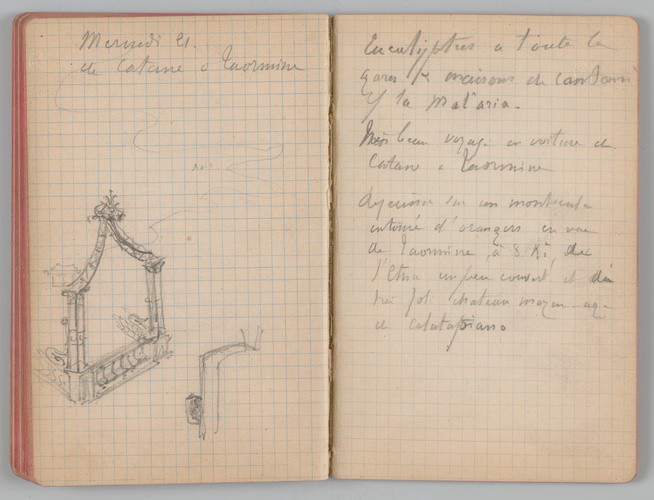 Mercredi 21.
de Catane à Taormine
Eucalyptus a toute les
gares & maisons de cantonni
la Mal'aria.
Très beau voyage en voiture de
Catane a Taormine
dejeuner sur un monticule
entouré d'orangers en vue
de Taormine, à 5 K², de
l'Etna un peu couvert et du
très joli chateau moyen-age
de Calatabiano